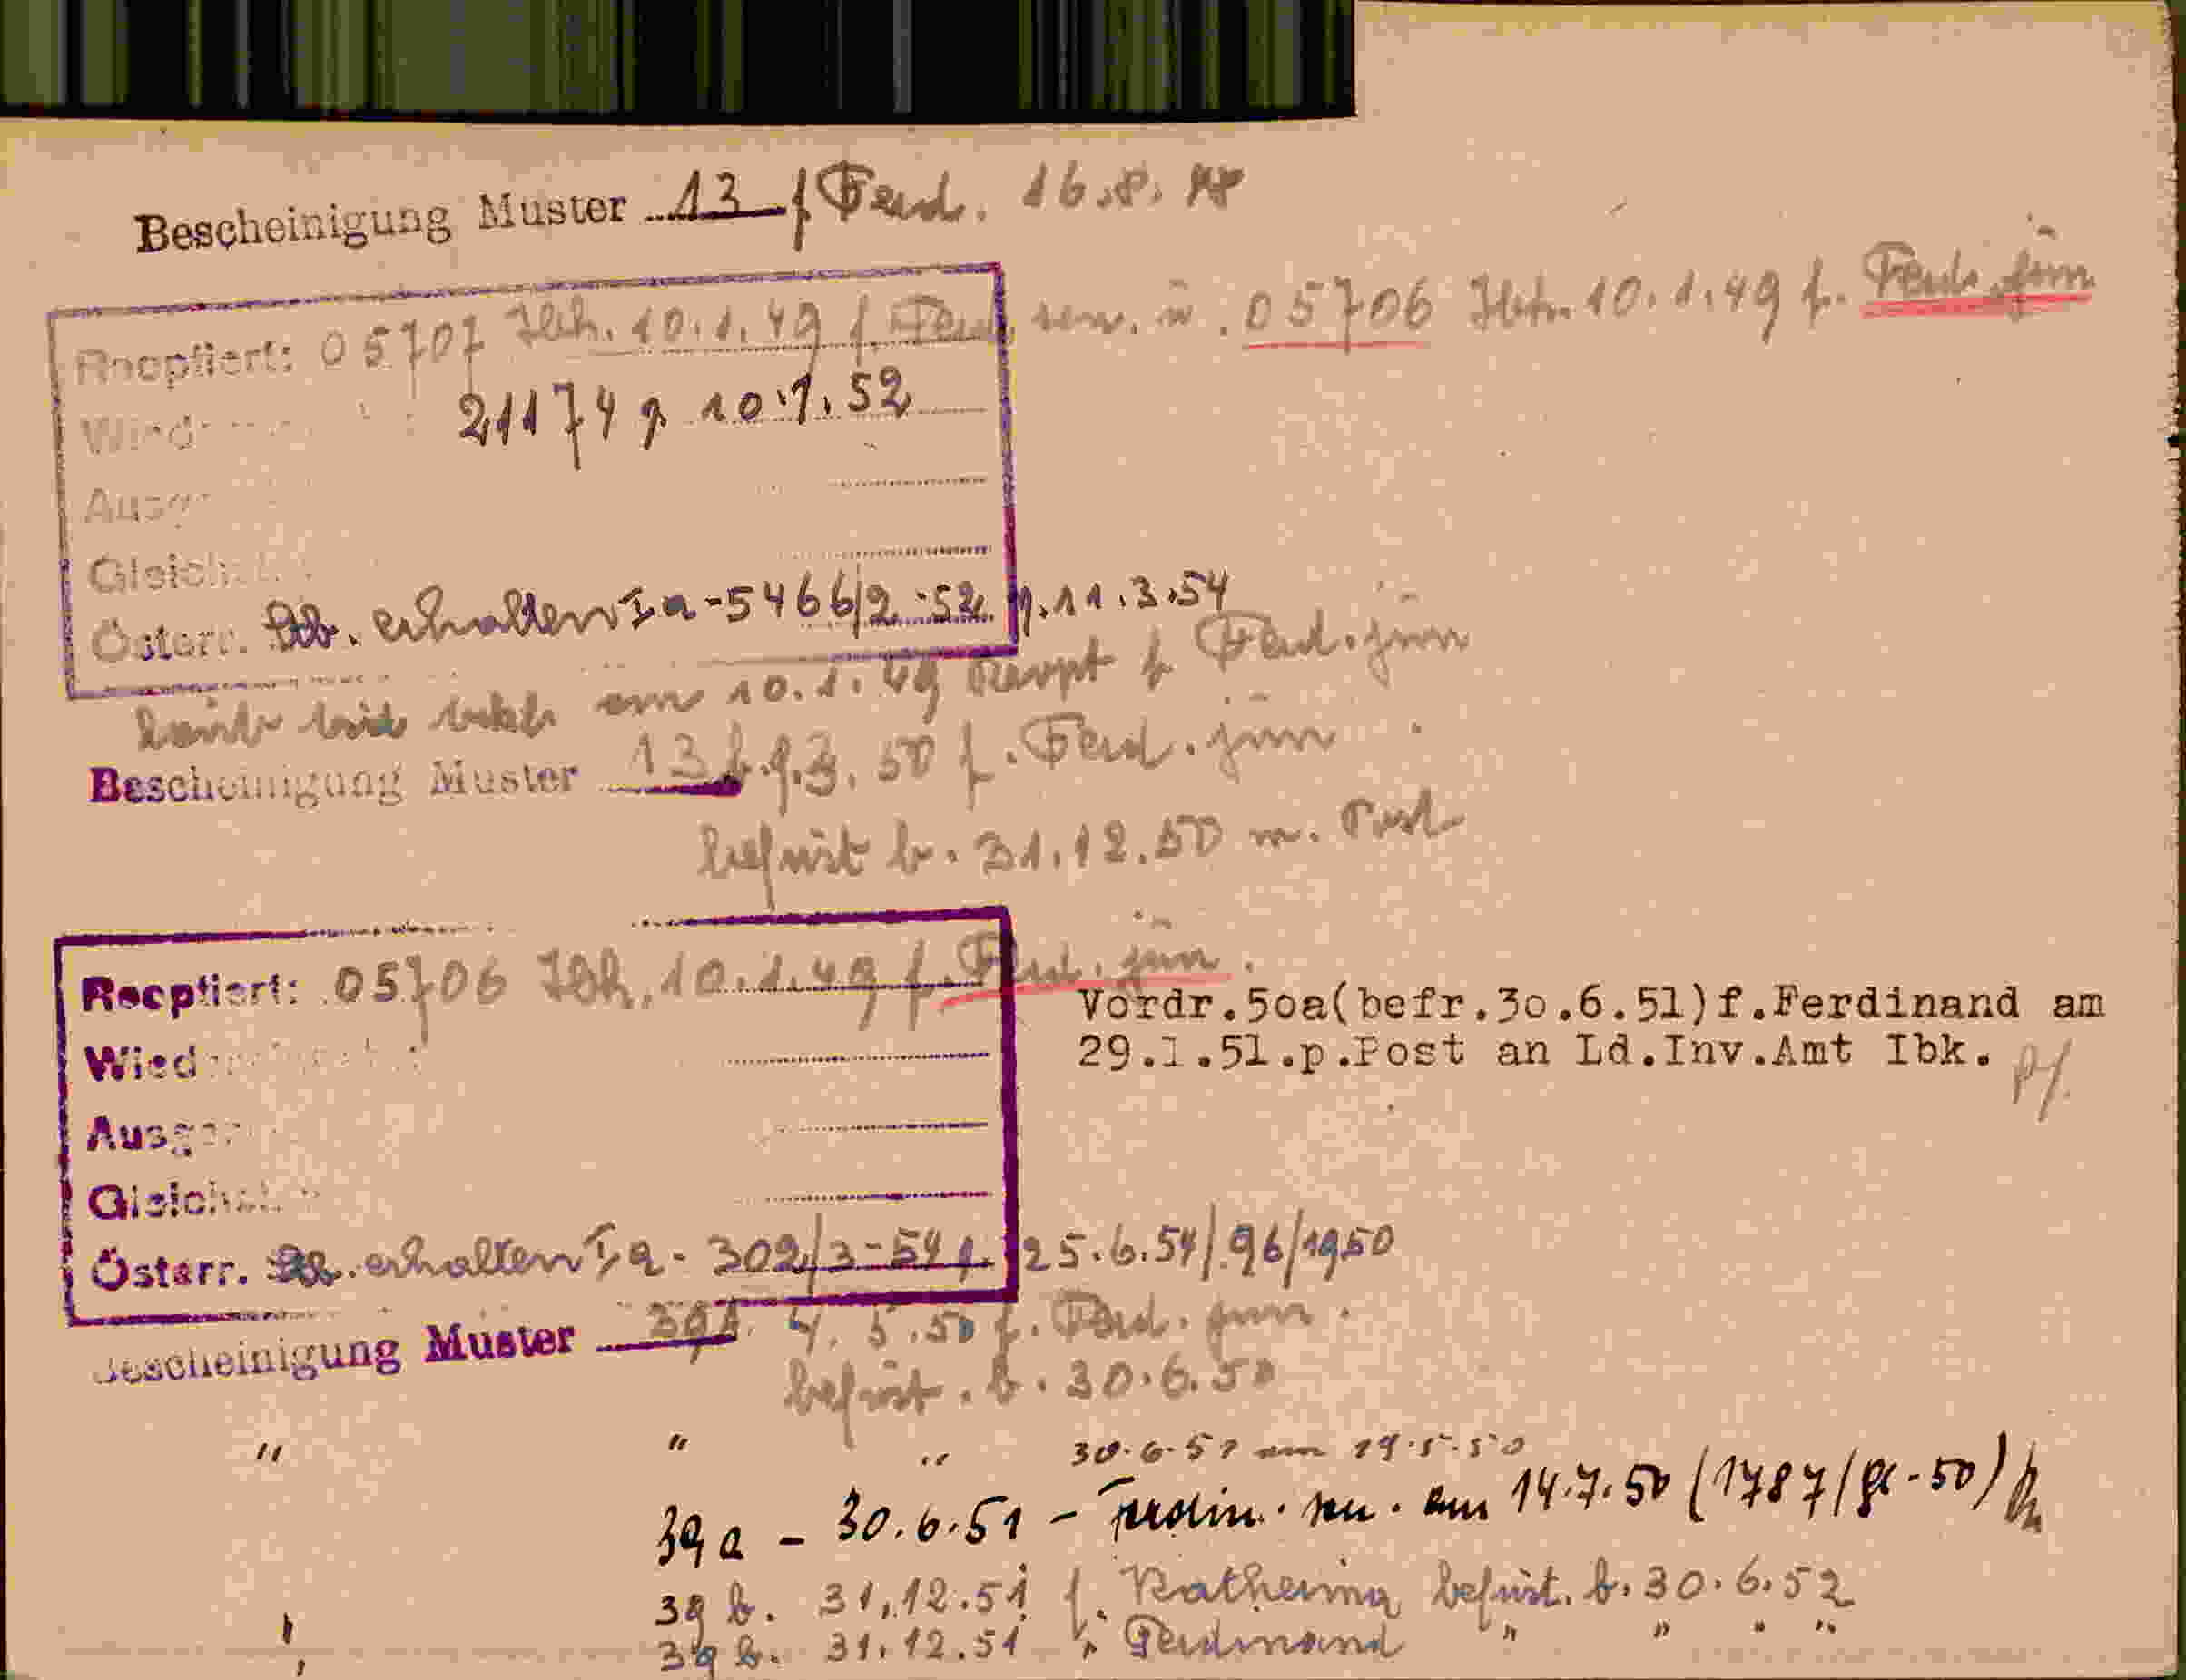 Bescheinigung Muster 13 f Ferd. 16.8.48
Reoptiert: 05707 Ibk. 10.1.49 f. Ferd. sen. ü. 05706 Ibk. 10.1.49 f. Ferd. jün
Wied 21174 p 10.1.52
Ausg
Gleich
Österr. erhalten Ia-5466/2-52 p. 11.3.54
am 10.1.49 Reopt f Ferd. jün
Bescheinigung Muster 13 b. 9.3.50 f. Ferd. jün
befrist b. 31.12.50 m. Post
Reoptiert: 05706 Ibk. 10.1.49 f. Ferd. jün.
Vordr.50a(befr.30.6.51)f.Ferdinand am
Wied
29.1.51.p.Post an Ld.Inv.Amt Ibk.
Ausge
Gleich
Österr. erhalten Ia-302/3-54 p. 25.6.54/96/1950
Bescheinigung Muster 39b. 4.5.50 f. Ferd. jun.
befrist. b. 30.6.50
" " " 30.6.51 am 19.5.50
39a - 30.6.51 - Ferdin. sen. am 14.7.50 (1787/ -50)
39 b. 31.12.51 f. Katherina befrist. b. 30.6.52
39 b. 31.12.51 " Ferdinand " " " "